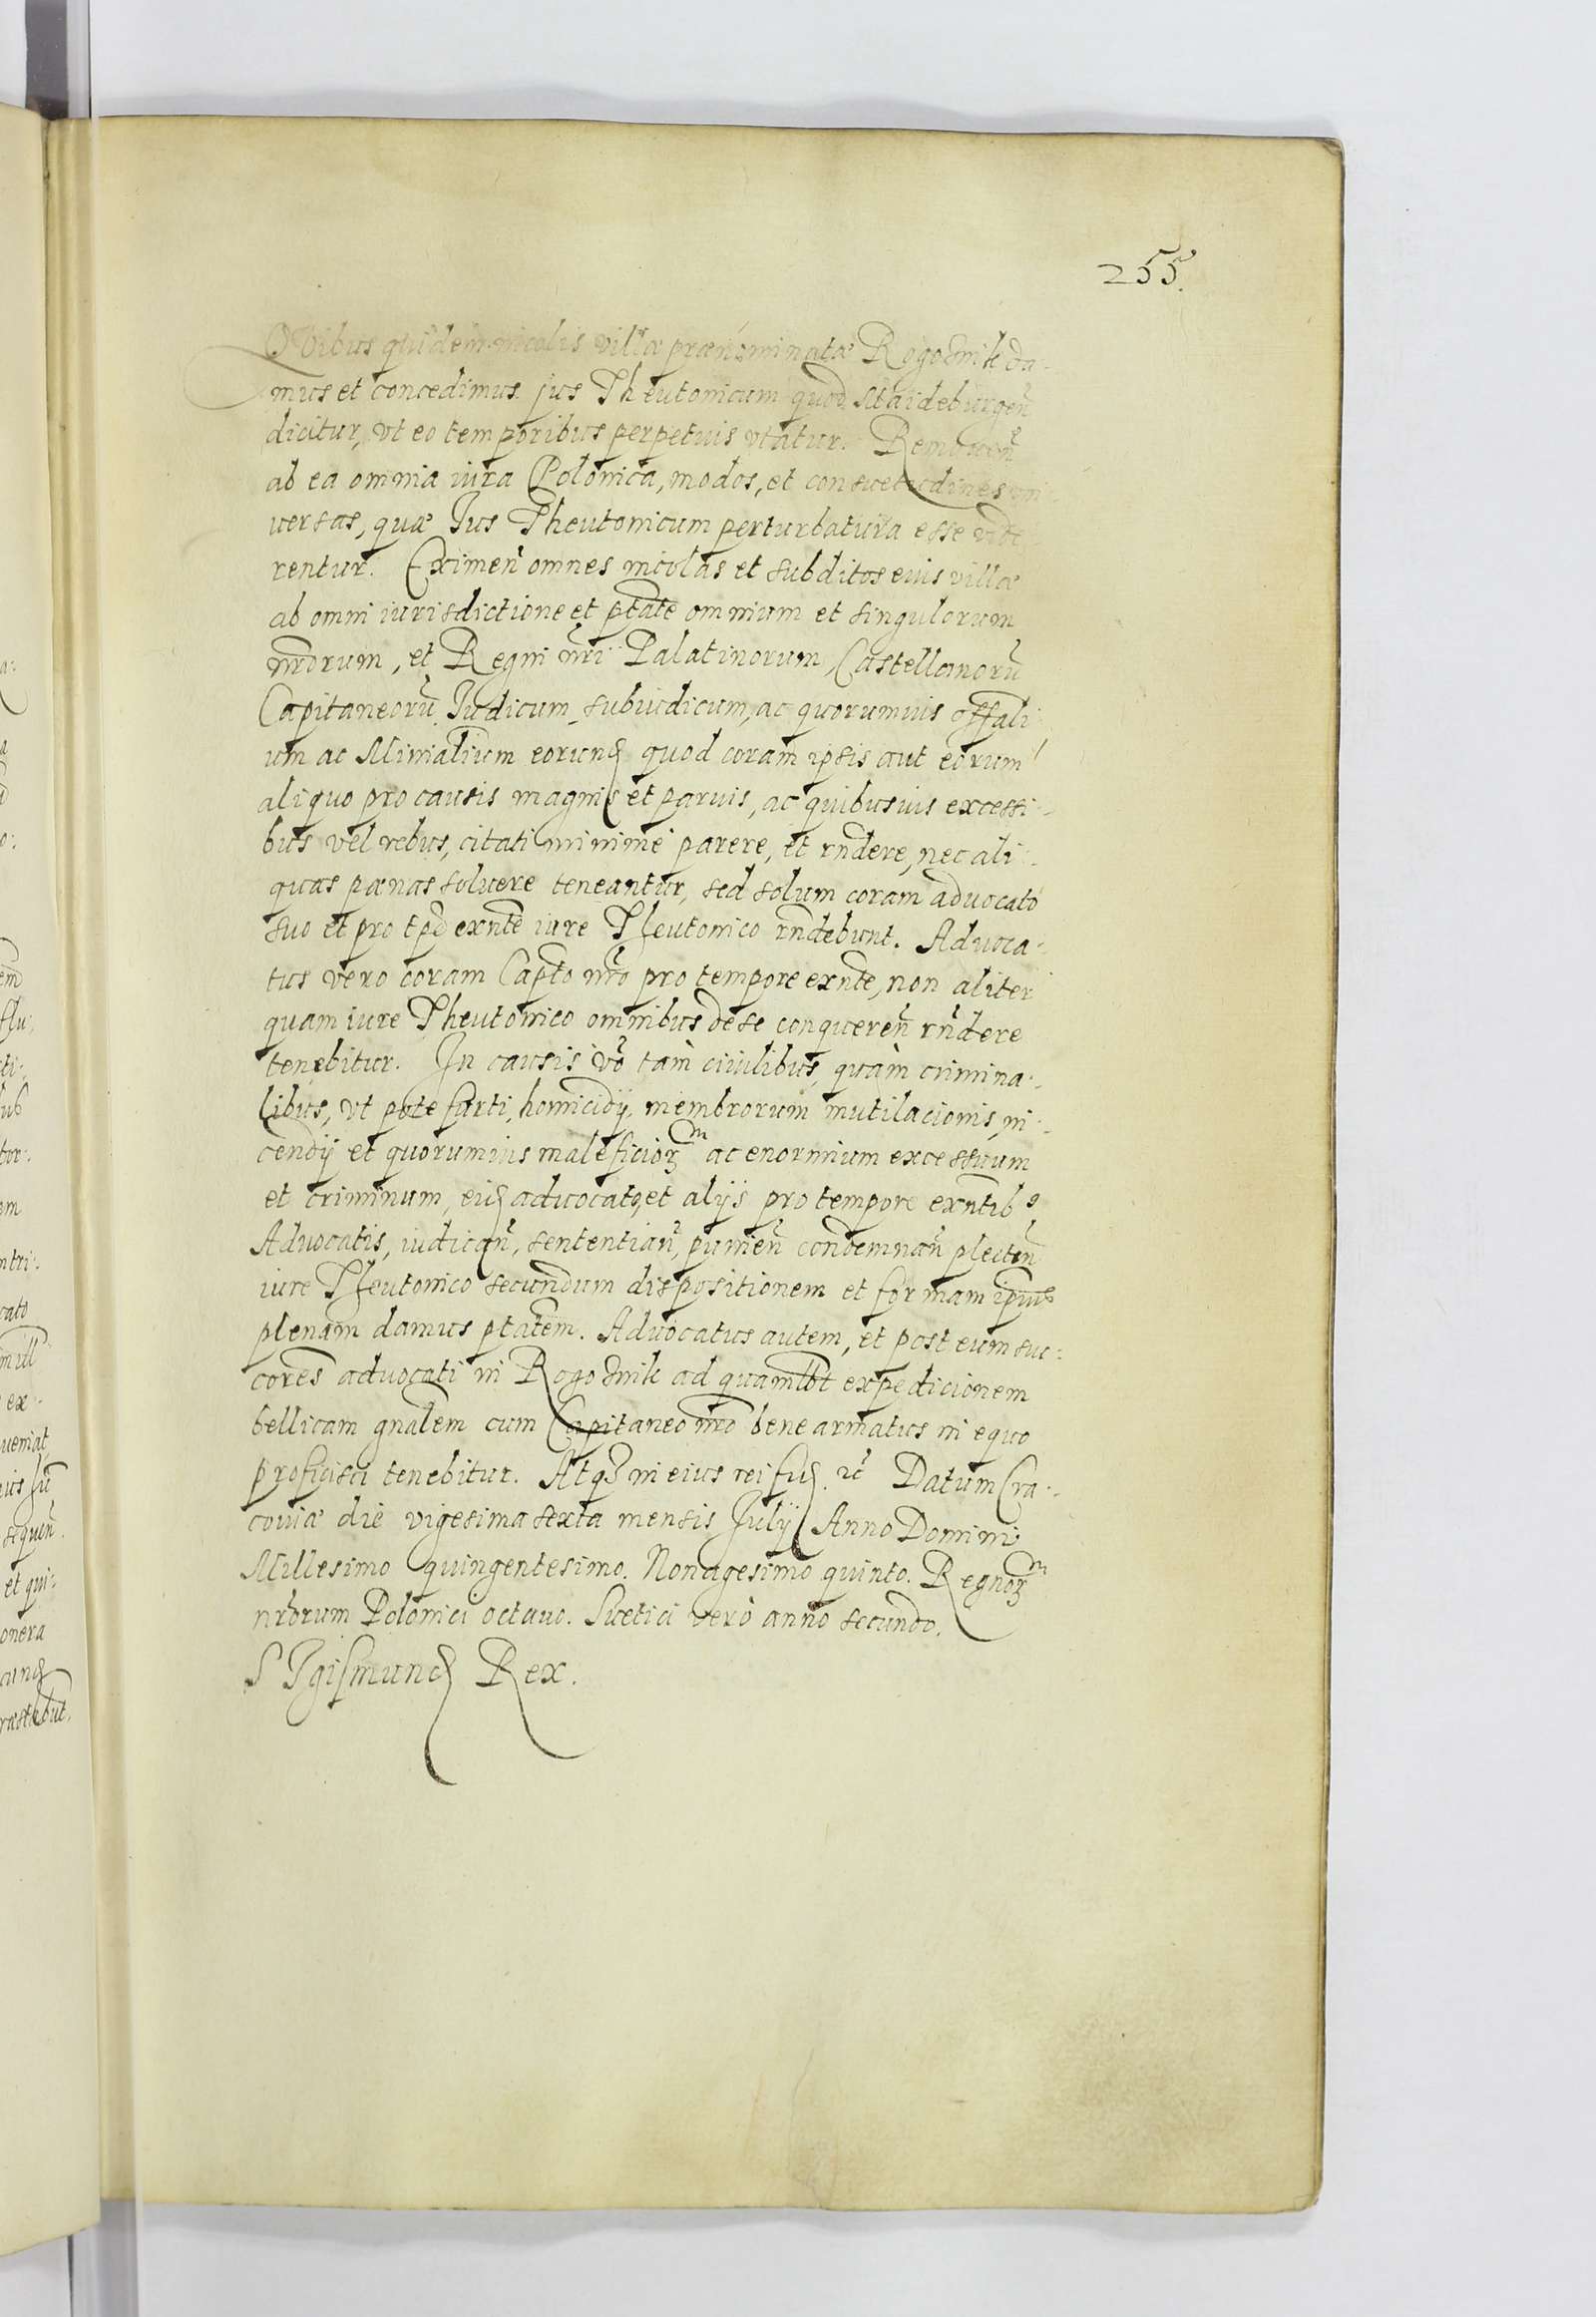 255.
QVibus quidem incolis villæ prænominatæ Rogoźnik da-
mus et concedimus jus Theutonicum quod Maideburgeñ
dicitur, vt eo temporibus perpetuis vtatur. Remoueñ
ab ea omnia iura Polonica, modos, et consuetudines vni-
uersas, quæ Jus Theutonicum perturbatura esse vide
rentur. Eximeñ omnes incolas et subditos eius villæ
ab omni iurisdictione et ptãte omnium et singulorum
nrõrum, et Regni nrĩ Palatinorum, Castellanorũ
Capitaneorũ, Judicum, subiudicum, ac quorumuis offali
um ac Minialium eorund quod coram ipsis aut eorum
aliquo pro causis magnis et paruis, ac quibusuis excessi-
bus vel rebus, citati minimè parere, et rñdere, nec ali-
quas pænas soluere teneantur, sed solum coram aduocato
suo et pro tpẽ exñte iure Theutonico rñdebunt. Aduoca-
tus vero coram Capto nrõ pro tempore exñte, non aliter
quam iure Theutonico omnibus de se conquereñ rñdere
tenebitur. In causis võ tam ciuilibus, quàm crimina-
libus, vt pote furti, homicidij, membrorum mutilacionis, in-
cendij et quorumuis maleficiorum ac enormium excessuum
et criminum, eid aduocato, et alijs pro tempore exñtib9
Aduocatis, iudicañ, sententiañ, punieñ condemnañ plecteñ
iure Theutonico secundum dispositionem et formam ipius
plenam damus ptatem. Aduocatus autem, et post eum suc-
cores aduocati in Rogoźnik ad quamlbt expedicionem
bellicam gnalem cum Capitaneo nrõ bene armatus in equo
proficisci tenebitur. Atq3 in eius rei fid. &c̃ Datum Cra-
couiæ die vigesima sexta mensis Julij Anno Domini
Millesimo quingentesimo. Nonagesimo quinto. Regnorum
nrõrum Polonici octauo. Suetici verò anno secundo.
SIgismund Rex.